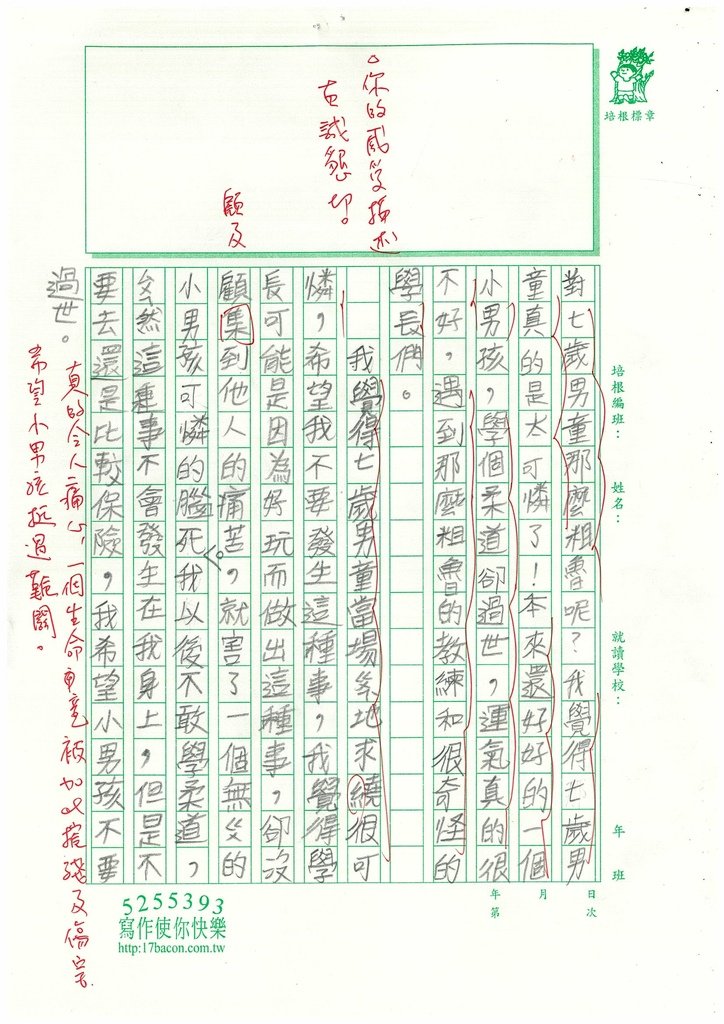 培根標章
你的感受描述
誠懇切。
顧及
培根編班： 姓名： 就讀學校： 年 班
年 月 日
第 次
對七歲男童那麼粗魯呢？我覺得七歲男
童真的是太可憐了！本來還好好的一個
小男孩，學個柔道卻過世，運氣真的很
不好，遇到那麼粗魯的教練和很奇怪的
學長們。
我覺得七歲男童當場地求繞很可
憐，希望我不要發生這種事，我覺得學
長可能是因為好玩而做出這種事，卻沒
顧集到他人的痛苦，就害了一個無的
小男孩可憐的腦死。我以後不敢學柔道，
然這種事不會發生在我身上，但是不
要去還是比較保險，我希望小男孩不要
過世。
真的令人痛心，一個生命竟被如此摧殘及傷害
希望小男孩挺過難關。
5255393
寫作使你快樂
http:17bacon.com.tw